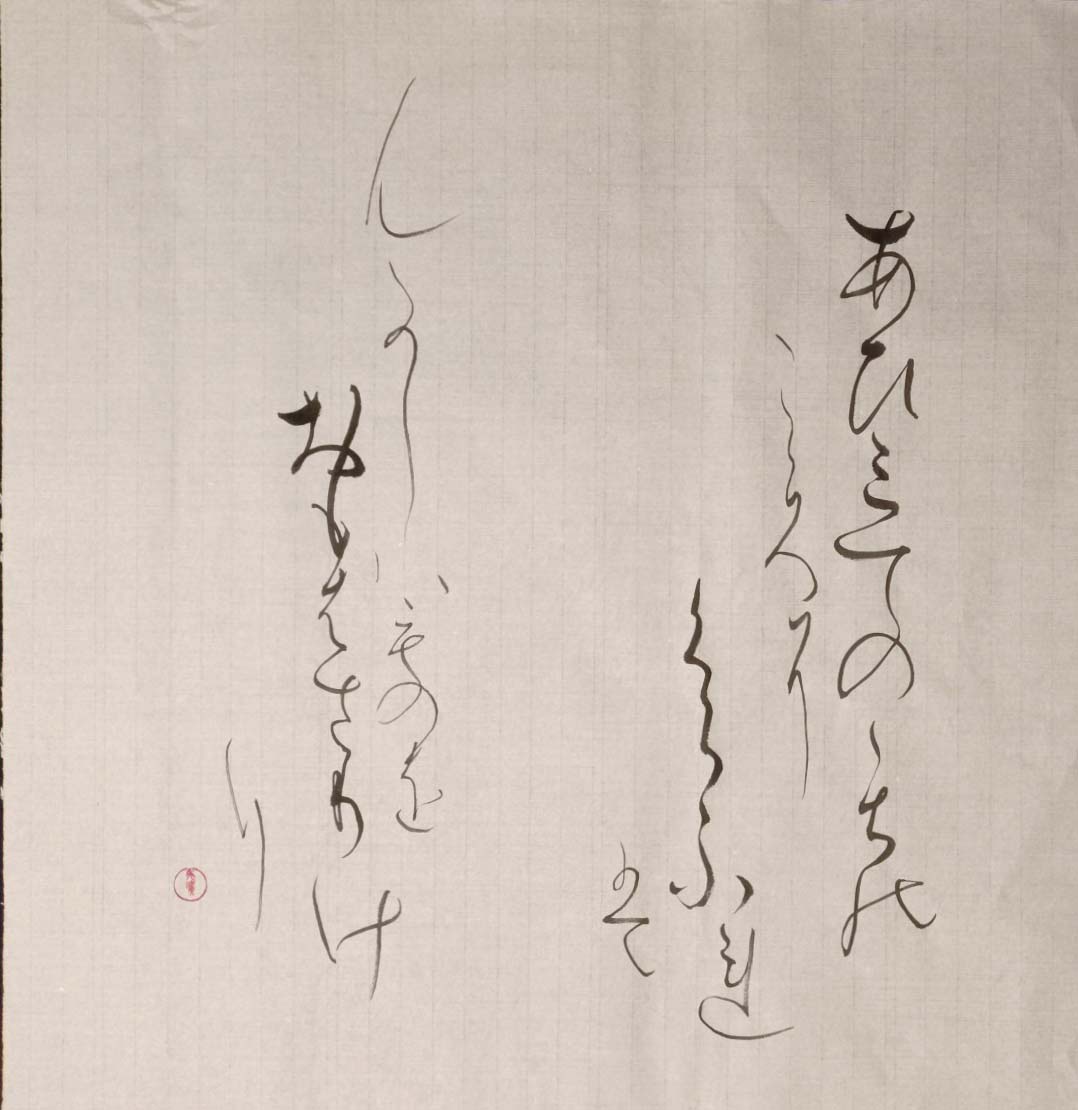 あひみてのゝちの
こゝろに
くらふれ
は
んかしはものを
おもはさりけ
り